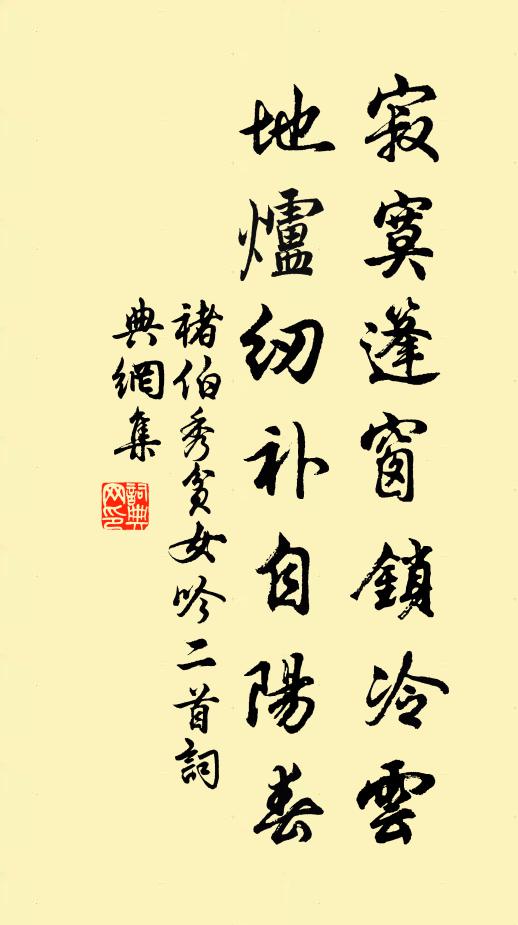 寂寞篷窗鎖冷雲
地爐紉补自陽春
褚伯秀貧女吟二首詞
典網集
詞典
网印